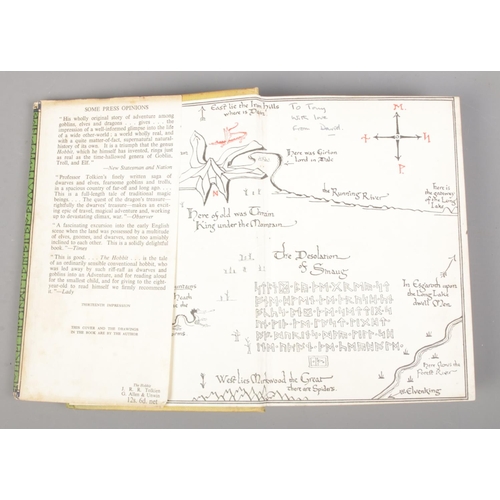 SOME PRESS OPINIONS
"His wholly original story of adventure among
goblins, elves and dragons . . . gives . . . the
impression of a well-informed glimpse into the life
of a wide other-world; a world wholly real, and
with a quite matter-of-fact, supernatural natural-
history of its own. It is a triumph that the genus
Hobbit, which he himself has invented, rings just
as real as the time-hallowed genera of Goblin,
Troll, and Elf."
—New Statesman and Nation
"Professor Tolkien's finely written saga of
dwarves and elves, fearsome goblins and trolls,
in a spacious country of far-off and long ago. . . .
This is a full-length tale of traditional magic
beings. . . . The quest of the dragon's treasure—
rightfully the dwarves' treasure—makes an exciting
epic of travel, magical adventure and, working
up to devastating climax, war."—Observer
"A fascinating excursion into the early English
scene when the land was possessed by a multitude
of elves, gnomes, and dwarves, none too amiably
inclined to each other. This is a solidly delightful
book."—Times
"This is good. . . . The Hobbit . . . is the tale
of an ordinarily sensible conventional hobbit, who
was led away by such riff-raff as dwarves and
elves into an Adventure, and for reading aloud
for the smaller child, and for giving to the eight-
year-old to read himself we firmly recommend
it."—Lady
THIRTEENTH IMPRESSION
THIS COVER AND THE DRAWINGS
IN THE BOOK ARE BY THE AUTHOR
The Hobbit
J. R. R. Tolkien
G. Allen & Unwin
12s. 6d. net
East lie the Iron Hills
where is Dain
To Tony
With love
From David
Here was Girion
Lord in Dale
The Running River
Here of old was Thrain
King under the Mountain
The Desolation
of Smaug
In Esgaroth upon
the Long Lake
dwell Men
West lies Mirkwood the Great
there are Spiders.
Here flows the
Forest River
Elvenking